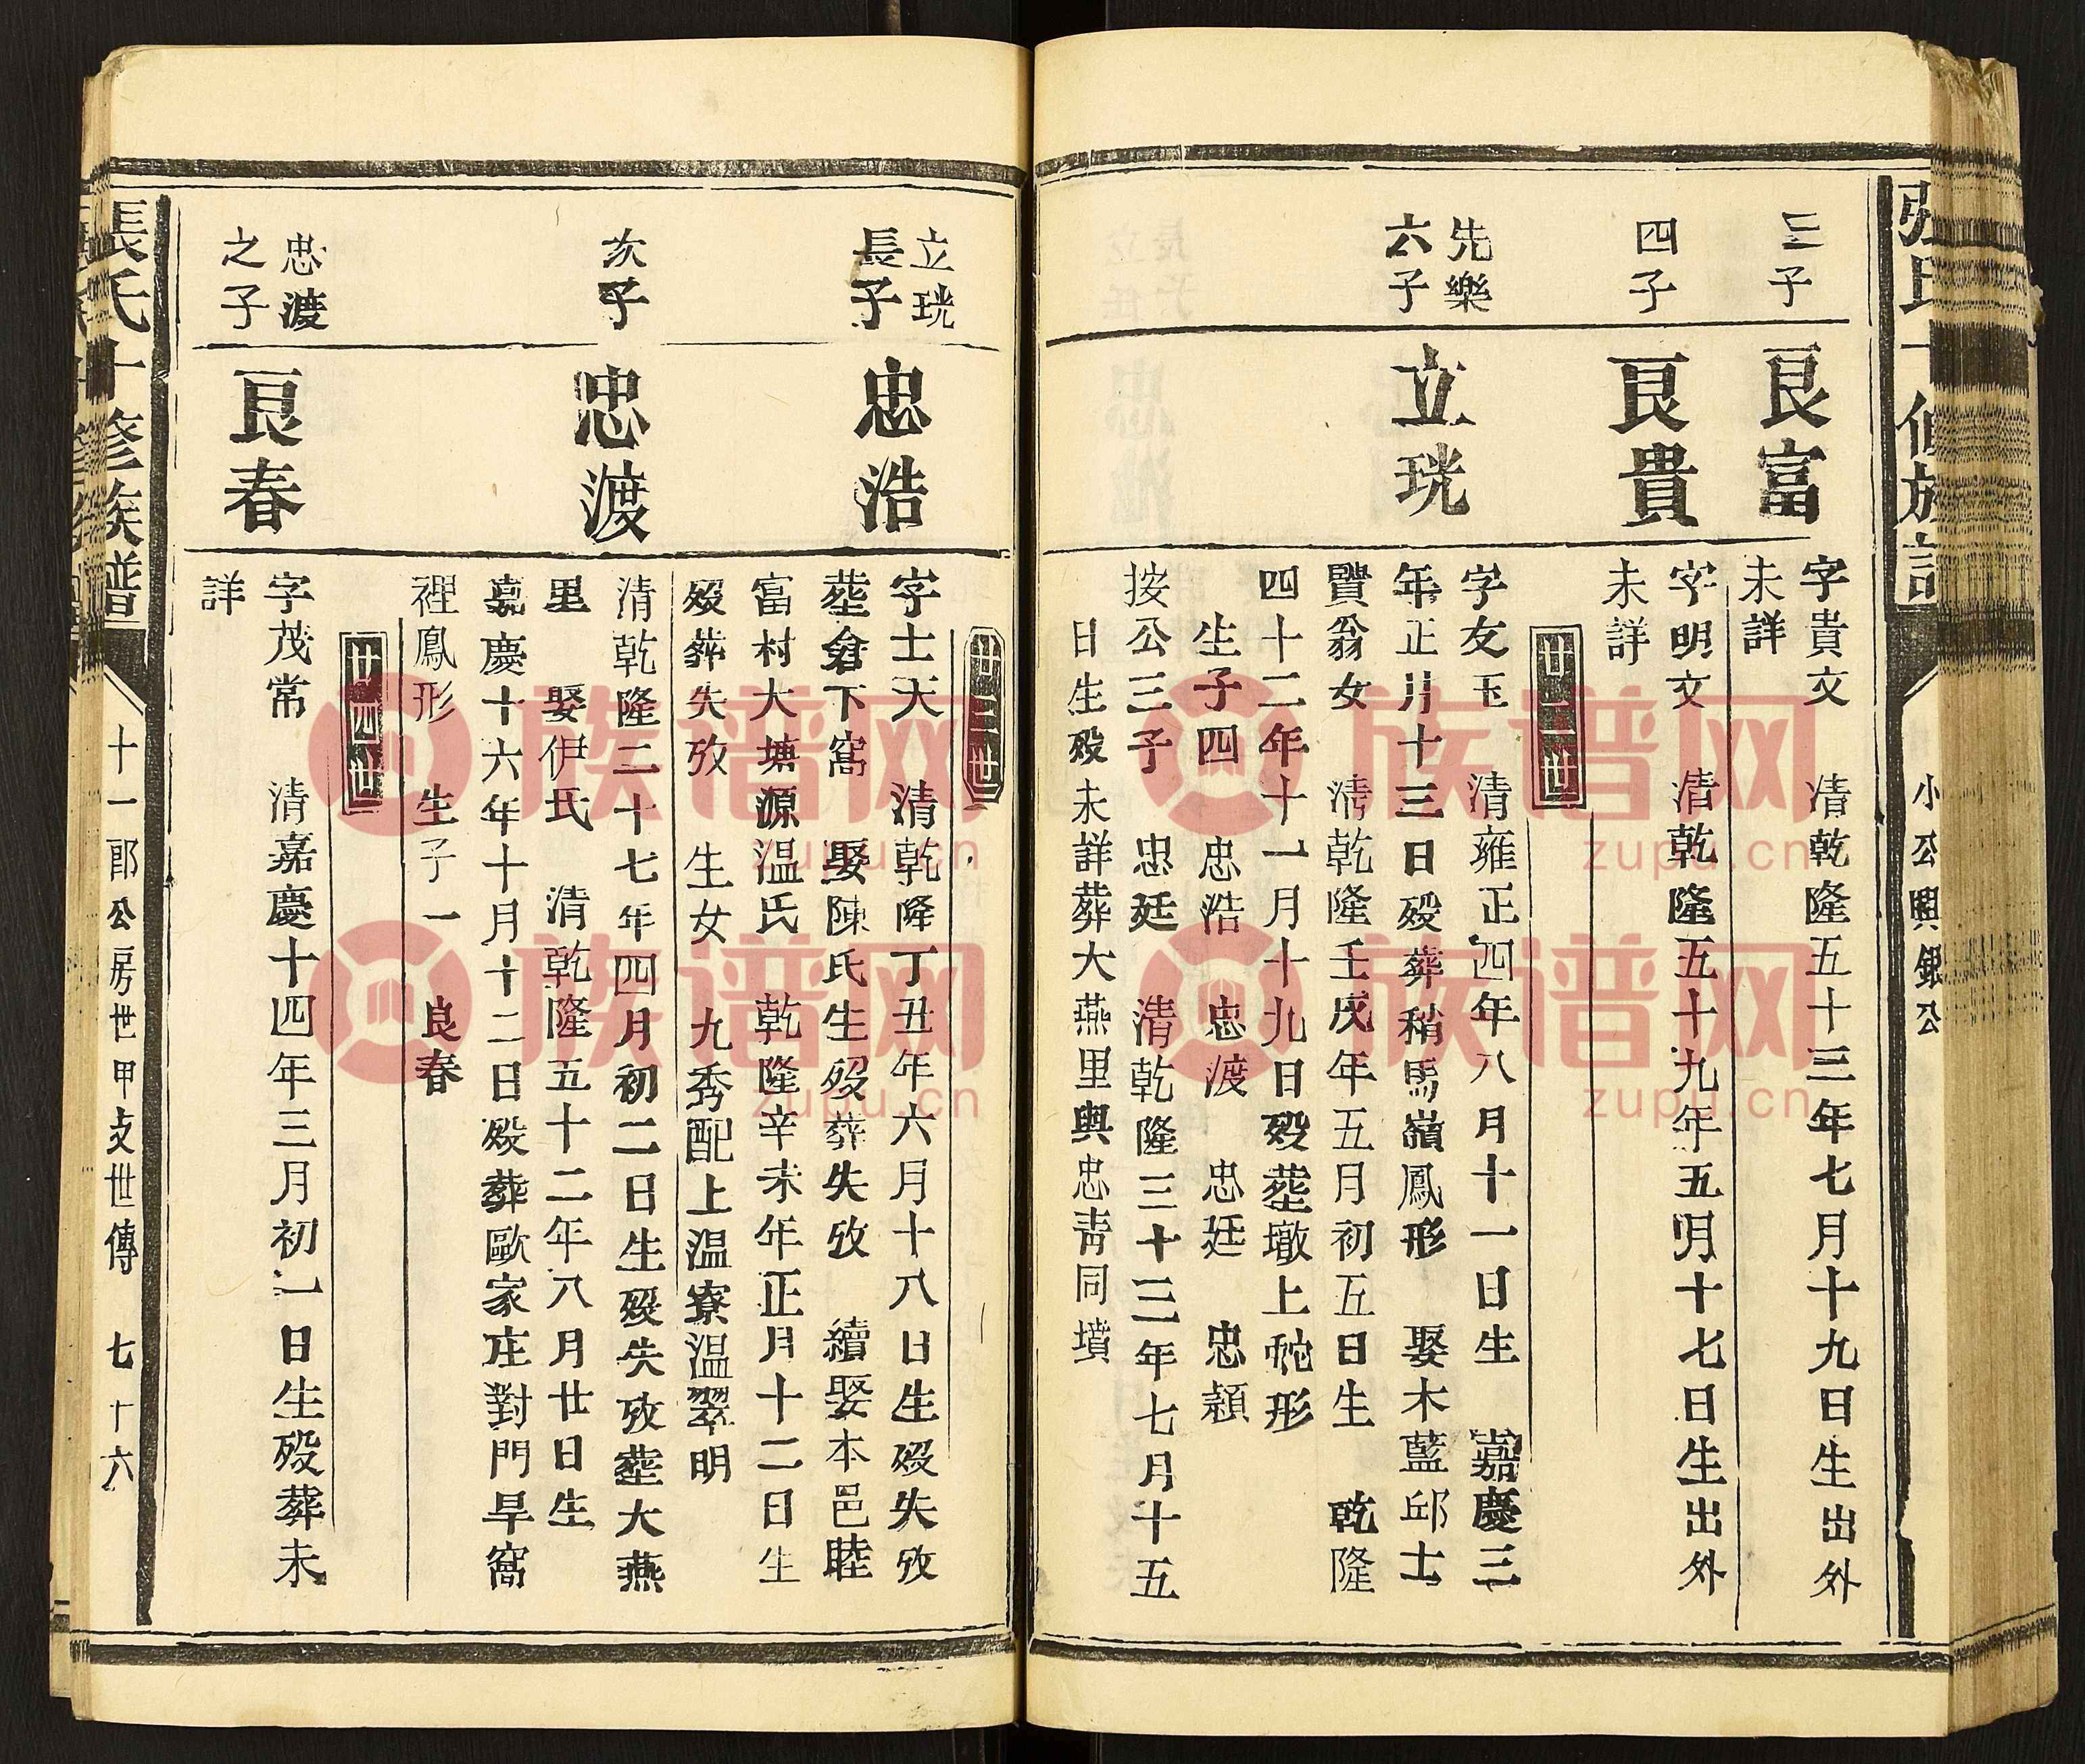 三子
良富
字貴文　清乾隆五十三年七月十九日生出外
未詳
四子
良貴
字明文　清乾隆五十九年五月十七日生出外
未詳
廿二世
先樂
六子
立珖
字友玉　清雍正四年八月十一日生　嘉慶三
年正月十三日殁葬稍馬嶺鳳形　娶木藍邱士
賢翁女　清乾隆壬戌年五月初五日生　乾隆
四十二年十一月十九日殁塟墩上蛇形
生子四　忠浩　忠渡　忠廷　忠穎
按公三子　忠廷　清乾隆三十三年七月十五
日生殁未詳葬大燕里與忠靑同墳
小公興銀公
廿三世
立珖
長子
忠浩
字士天　清乾隆丁丑年六月十八日生殁失攷
塟倉下窩　娶陳氏生殁葬失攷　續娶本邑睦
富村大塘源温氏　乾隆辛未年正月十二日生
殁葬失攷　生女　九秀配上温寮温翠明
次子
忠渡
清乾隆二十七年四月初二日生殁失攷塟大燕
里　娶伊氏　清乾隆五十二年八月廿日生
嘉慶十六年十月十二日殁葬歐家庄對門旱窩
裡鳳形　生子一　良春
廿四世
忠渡
之子
良春
字茂常　清嘉慶十四年三月初一日生殁葬未
詳
張氏十修族譜
十一郎公房世甲攴世傳　七十六
族谱网
zupu.cn
族谱网
zupu.cn
族谱网
zupu.cn
族谱网
zupu.cn